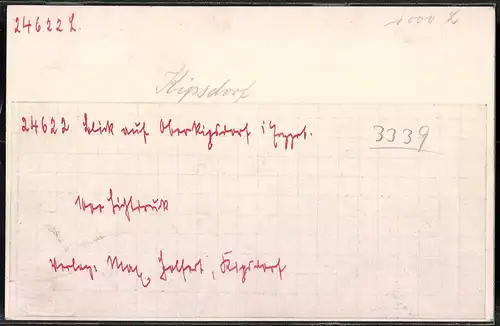 24622 L.
1000 L
Kipsdorf
24622 Blick auf Oberkipsdorf i/Erzgeb.
3339
Lichtdruck
Verlag: Max Helfert, Kipsdorf